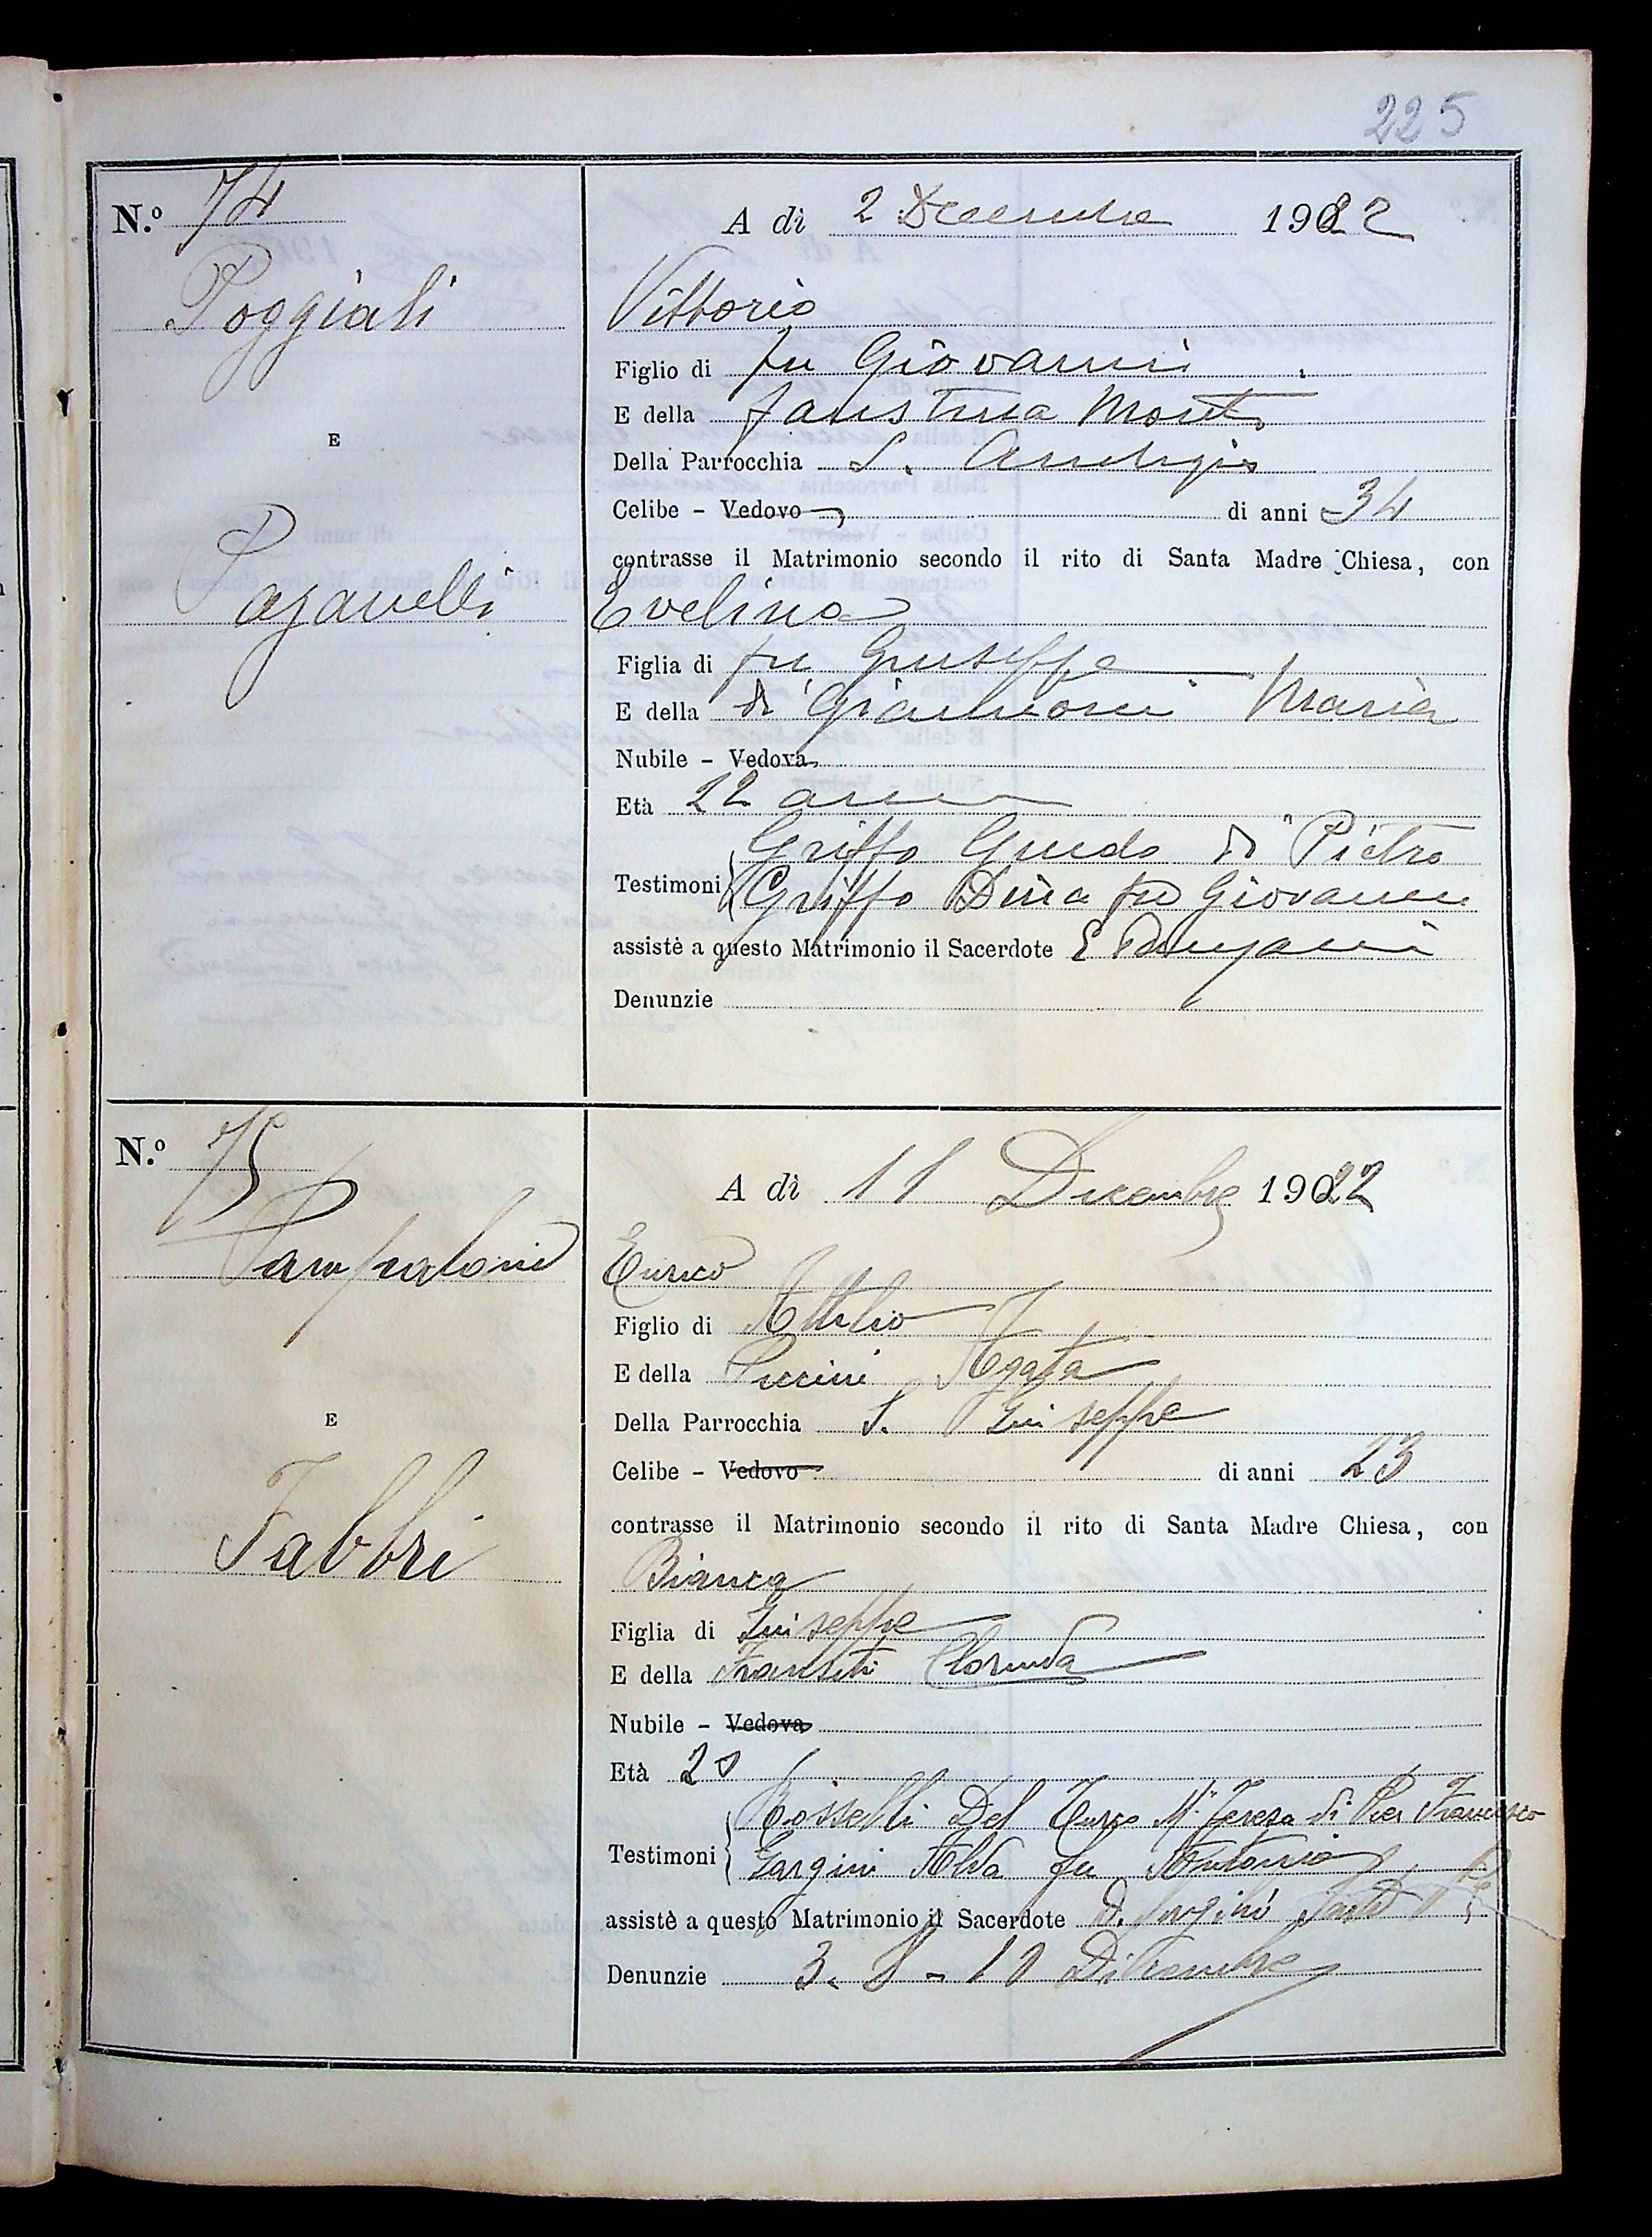 225
N.º 74
A dì 2 Decembre 1922
Poggiali
Vittorio
Figlio di fu Giovanni
E della Faustina Monti
E
Della Parrocchia S. Ambrogio
Celibe - Vedovo di anni 34
contrasse il Matrimonio secondo il rito di Santa Madre Chiesa, con
Paganelli
Evelina
Figlia di fu Giuseppe
E della di Maria
Nubile - Vedova
Età 22 anni
Griffo Guido di Pietro
Testimoni Griffo Dina fu Giovanni
assistè a questo Matrimonio il Sacerdote E
Denunzie
N.º 75
A dì 11 Dicembre 1922
Pampaloni
Enrico
Figlio di Attilio
E della Puccini Agata
E
Della Parrocchia S. Giuseppe
Celibe - Vedovo di anni 23
contrasse il Matrimonio secondo il rito di Santa Madre Chiesa, con
Fabbri
Bianca
Figlia di Giuseppe
E della Clorinda
Nubile - Vedova
Età 20
Rosselli Del Turco M. Teresa di Pier Francesco
Testimoni Gargini Alda fu Antonio
assistè a questo Matrimonio il Sacerdote D.
Denunzie 3. 8 - 10 Dicembre